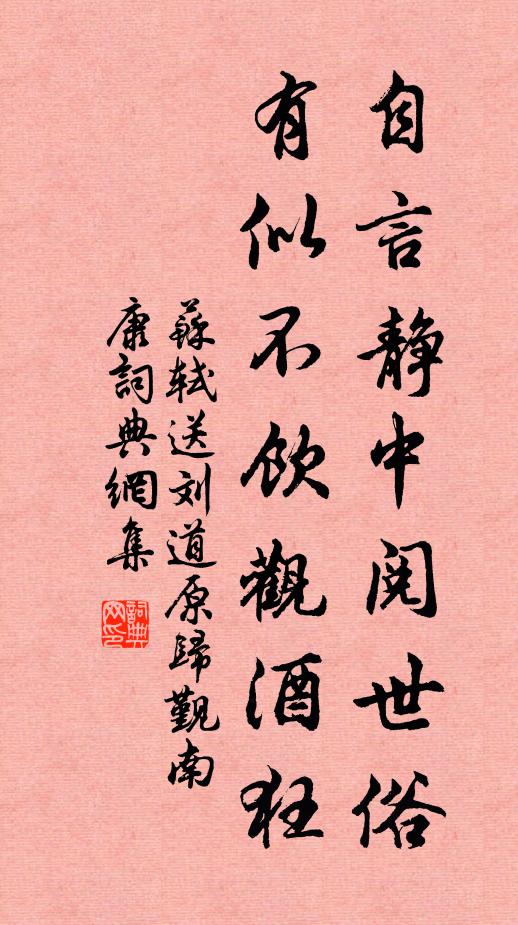 自言静中閱世俗
有似不飲觀酒狂
蘇軾送刘道原歸覲南
康詞典網集
詞典网印